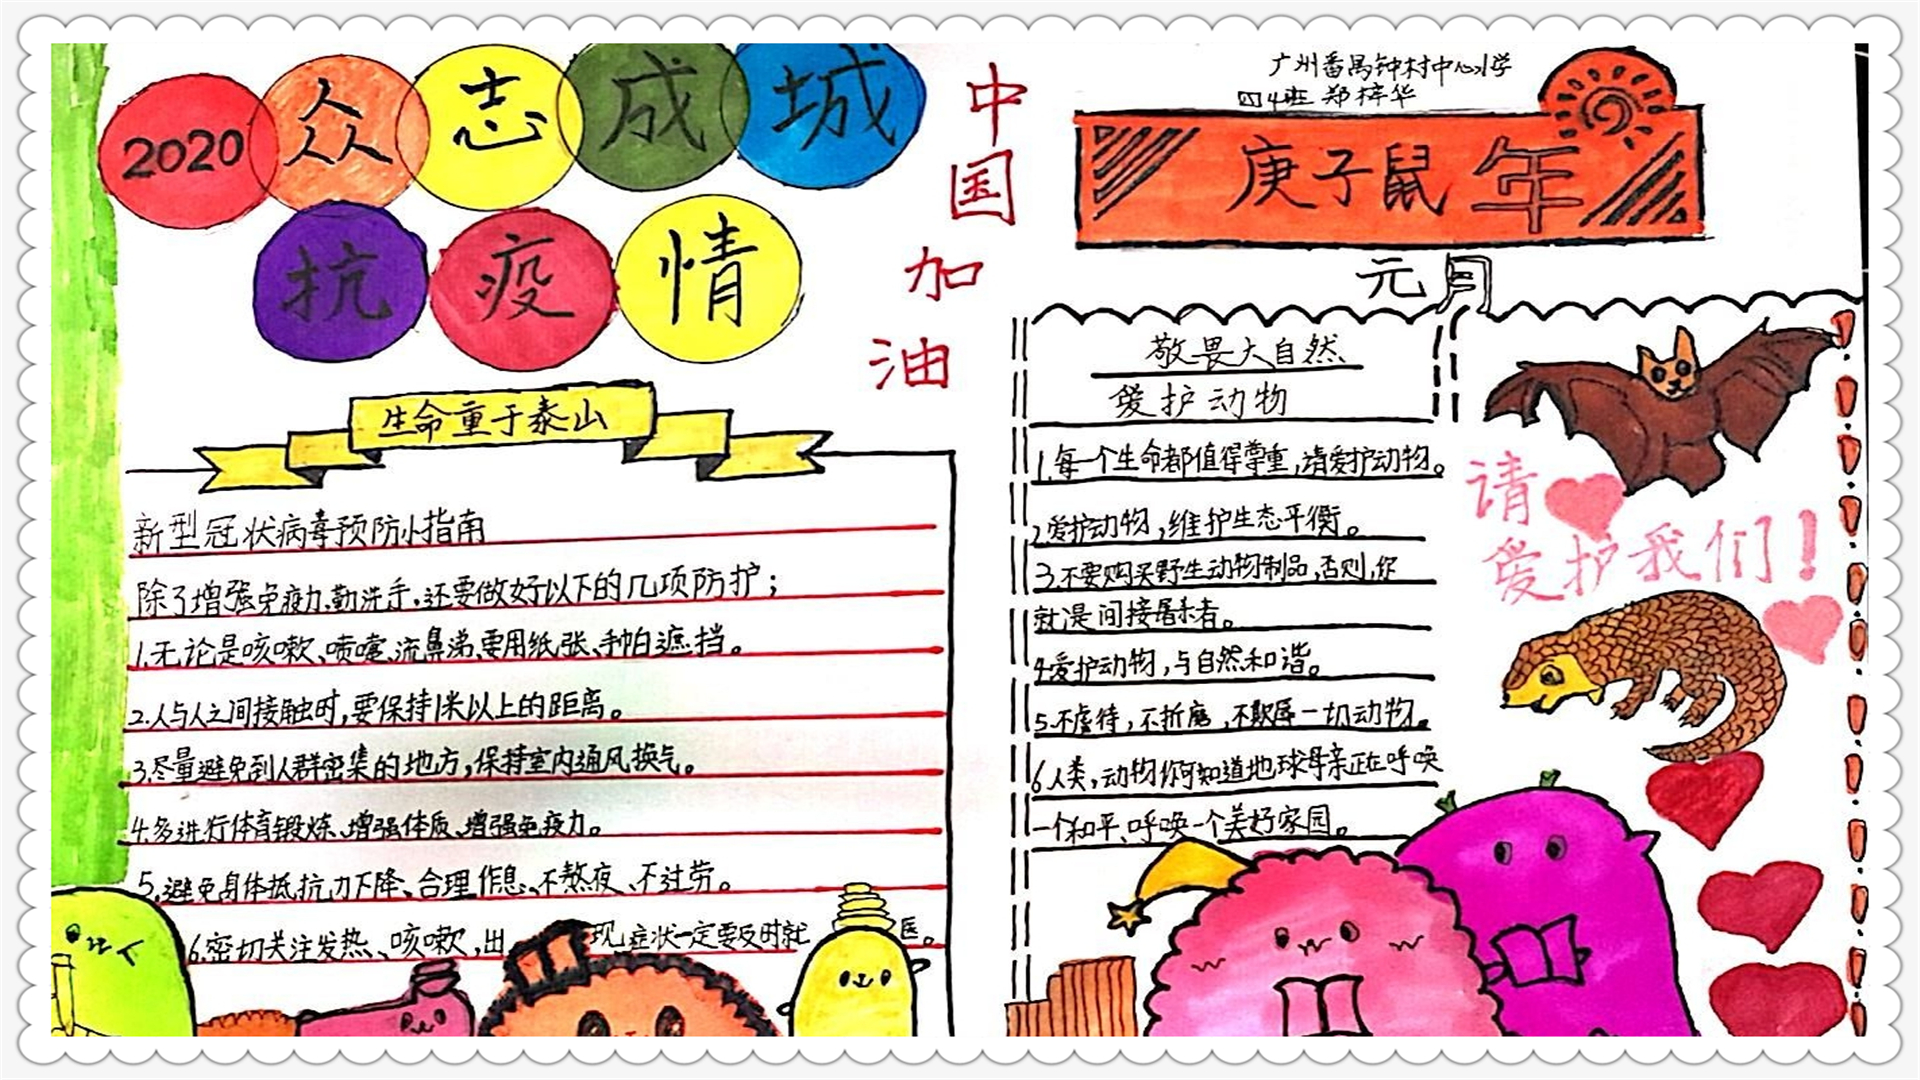 2020 众志成城
抗疫情
中国加油
生命重于泰山
新型冠状病毒预防小指南
除了增强免疫力,勤洗手,还要做好以下的几项防护;
1.无论是咳嗽、喷嚏、流鼻涕、要用纸张、手帕遮挡。
2.人与人之间接触时,要保持1米以上的距离。
3.尽量避免到人群密集的地方,保持室内通风换气。
4.多进行体育锻炼、增强体质、增强免疫力。
5.避免身体抵抗力下降、合理作息、不熬夜、不过劳。
6.密切关注发热、咳嗽,出现症状一定要及时就医。
广州番禺钟村中心小学
四4班 郑梓华
庚子鼠年
元月
敬畏大自然
爱护动物
1.每一个生命都值得尊重,请爱护动物。
2.爱护动物,维护生态平衡。
3.不要购买野生动物制品,否则,你
就是间接屠杀者。
4爱护动物,与自然和谐。
5.不虐待,不折磨,不欺辱一切动物。
6人类,动物你可知道地球母亲正在呼唤
一个和平、呼唤一个美好家园。
请
爱护我们!